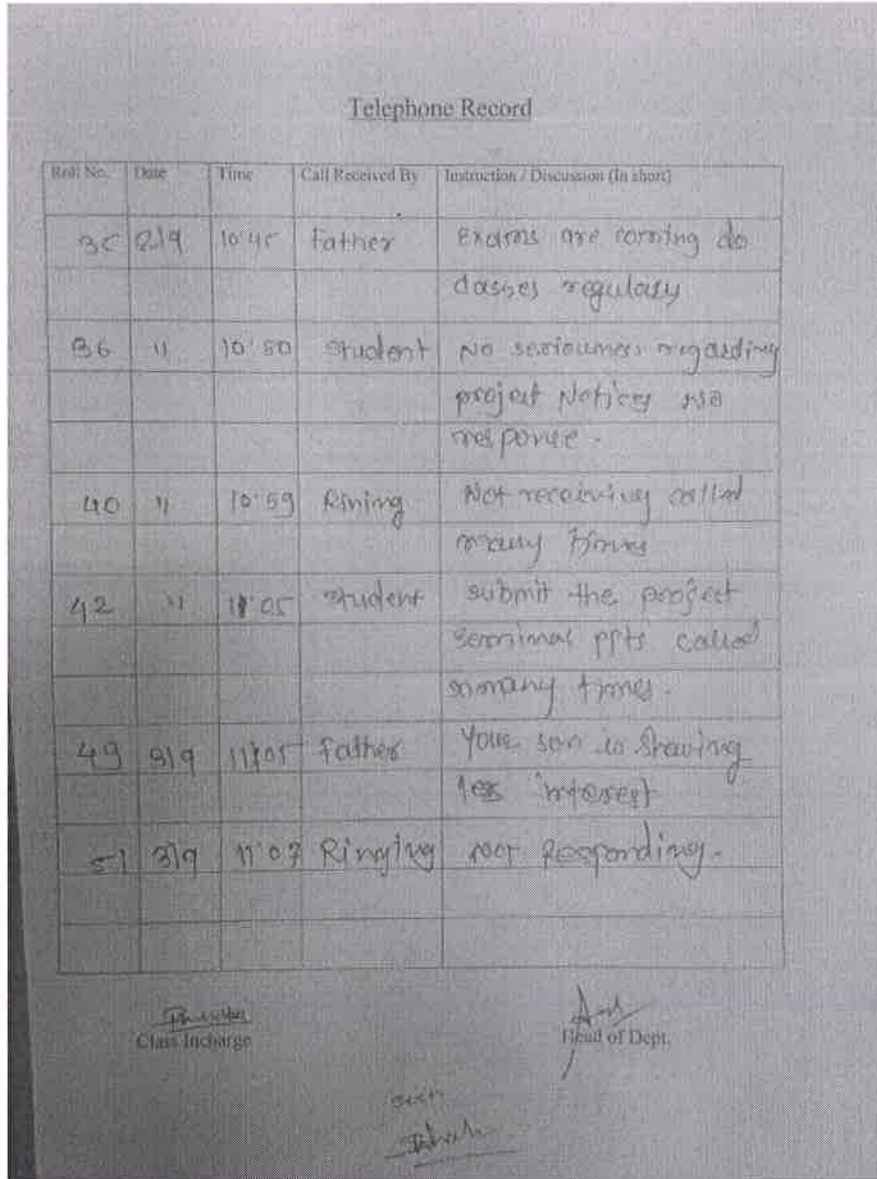 Telephone Record
Roll No. Date Time Call Received By Instruction / Discussion (In short)
35 2/9 10:45 Father Exams are coming do
classes regulary
36 " 10:50 Student No seriousness regarding
project Notices no
response.
40 " 10:59 Rining Not receiving called
many times
42 " 11:05 Student submit the project
semminal ppts called
so many times.
49 3/9 11:05 Father Your son is showing
less interest
51 3/9 11:07 Ringing not Responding.
Class Incharge Head of Dept.